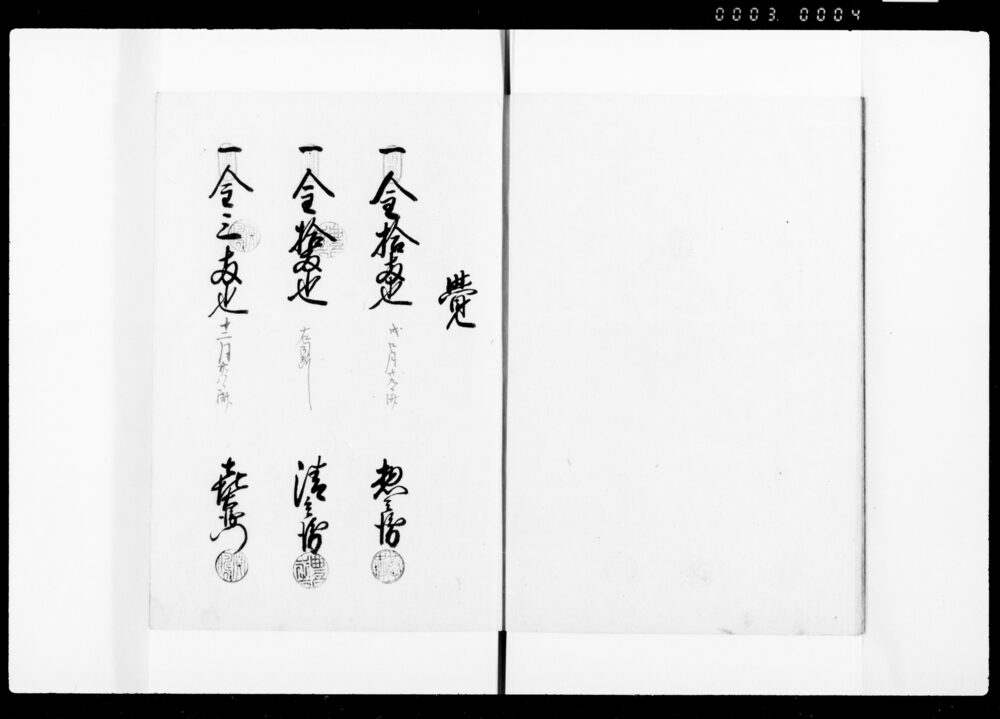 0003. 0004
覺
一金拾両也
戌七月十九日済
惣兵衛
一金拾両也
右同断
清兵衛
一金三両也
十二月廿八日済